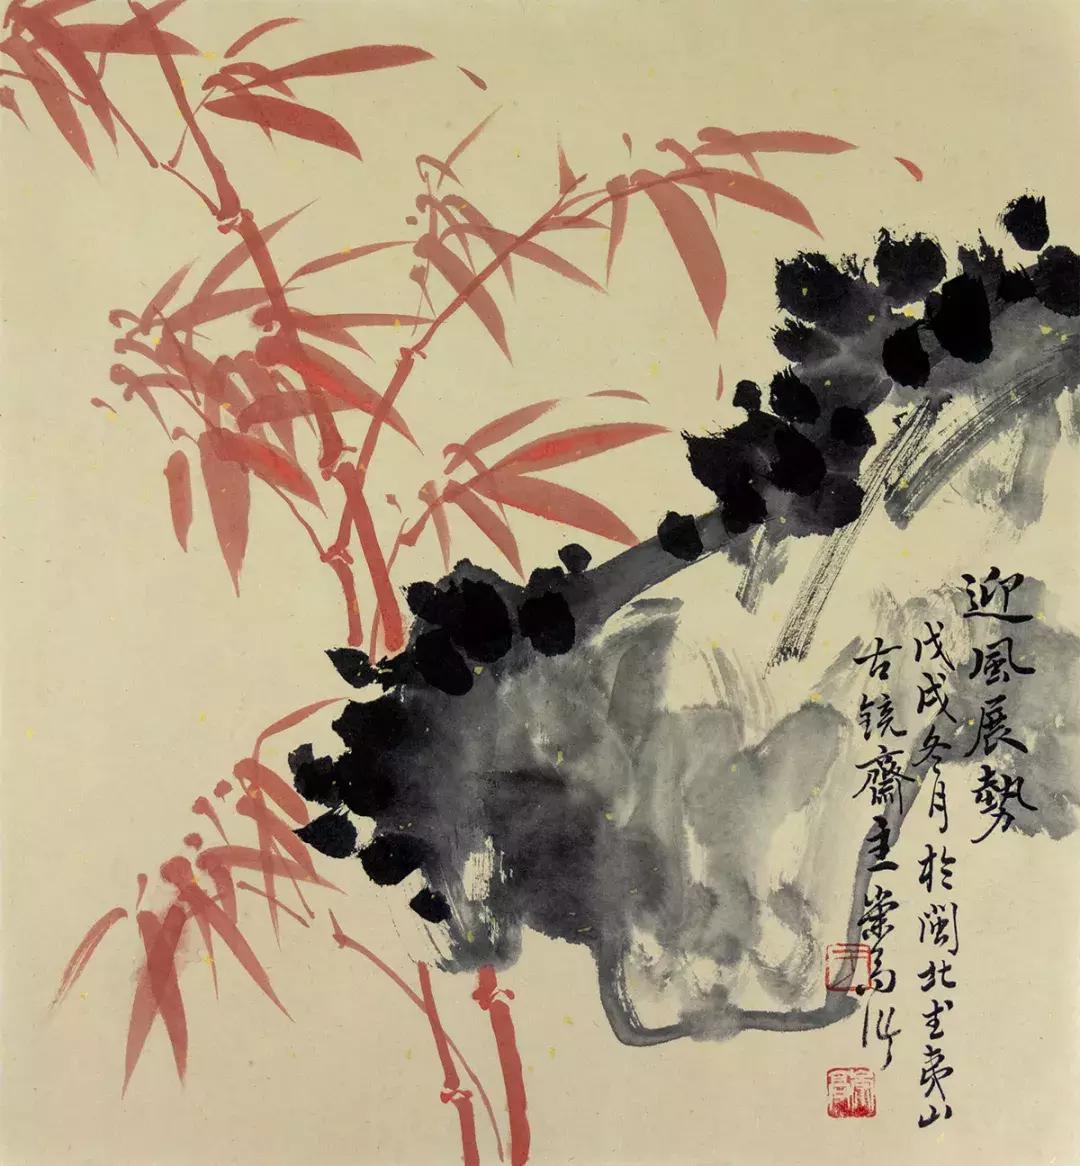 迎風展勢
戊戌冬月於闽北武夷山
古镜齋主高作